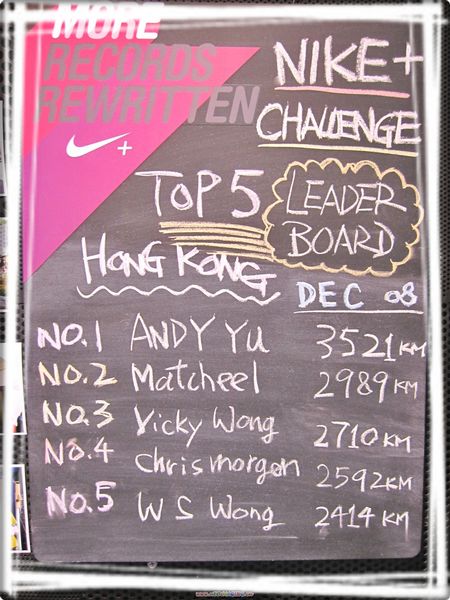 MORE
RECORDS
REWRITTEN
+
NIKE+
CHALLENGE
TOP 5
LEADER
BOARD
HONG KONG
DEC 08
NO.1 ANDY YU 3521KM
NO.2 Matcheel 2989KM
NO.3 Vicky Wong 2710KM
NO.4 Chrismorgan 2592KM
NO.5 W S Wong 2414 KM